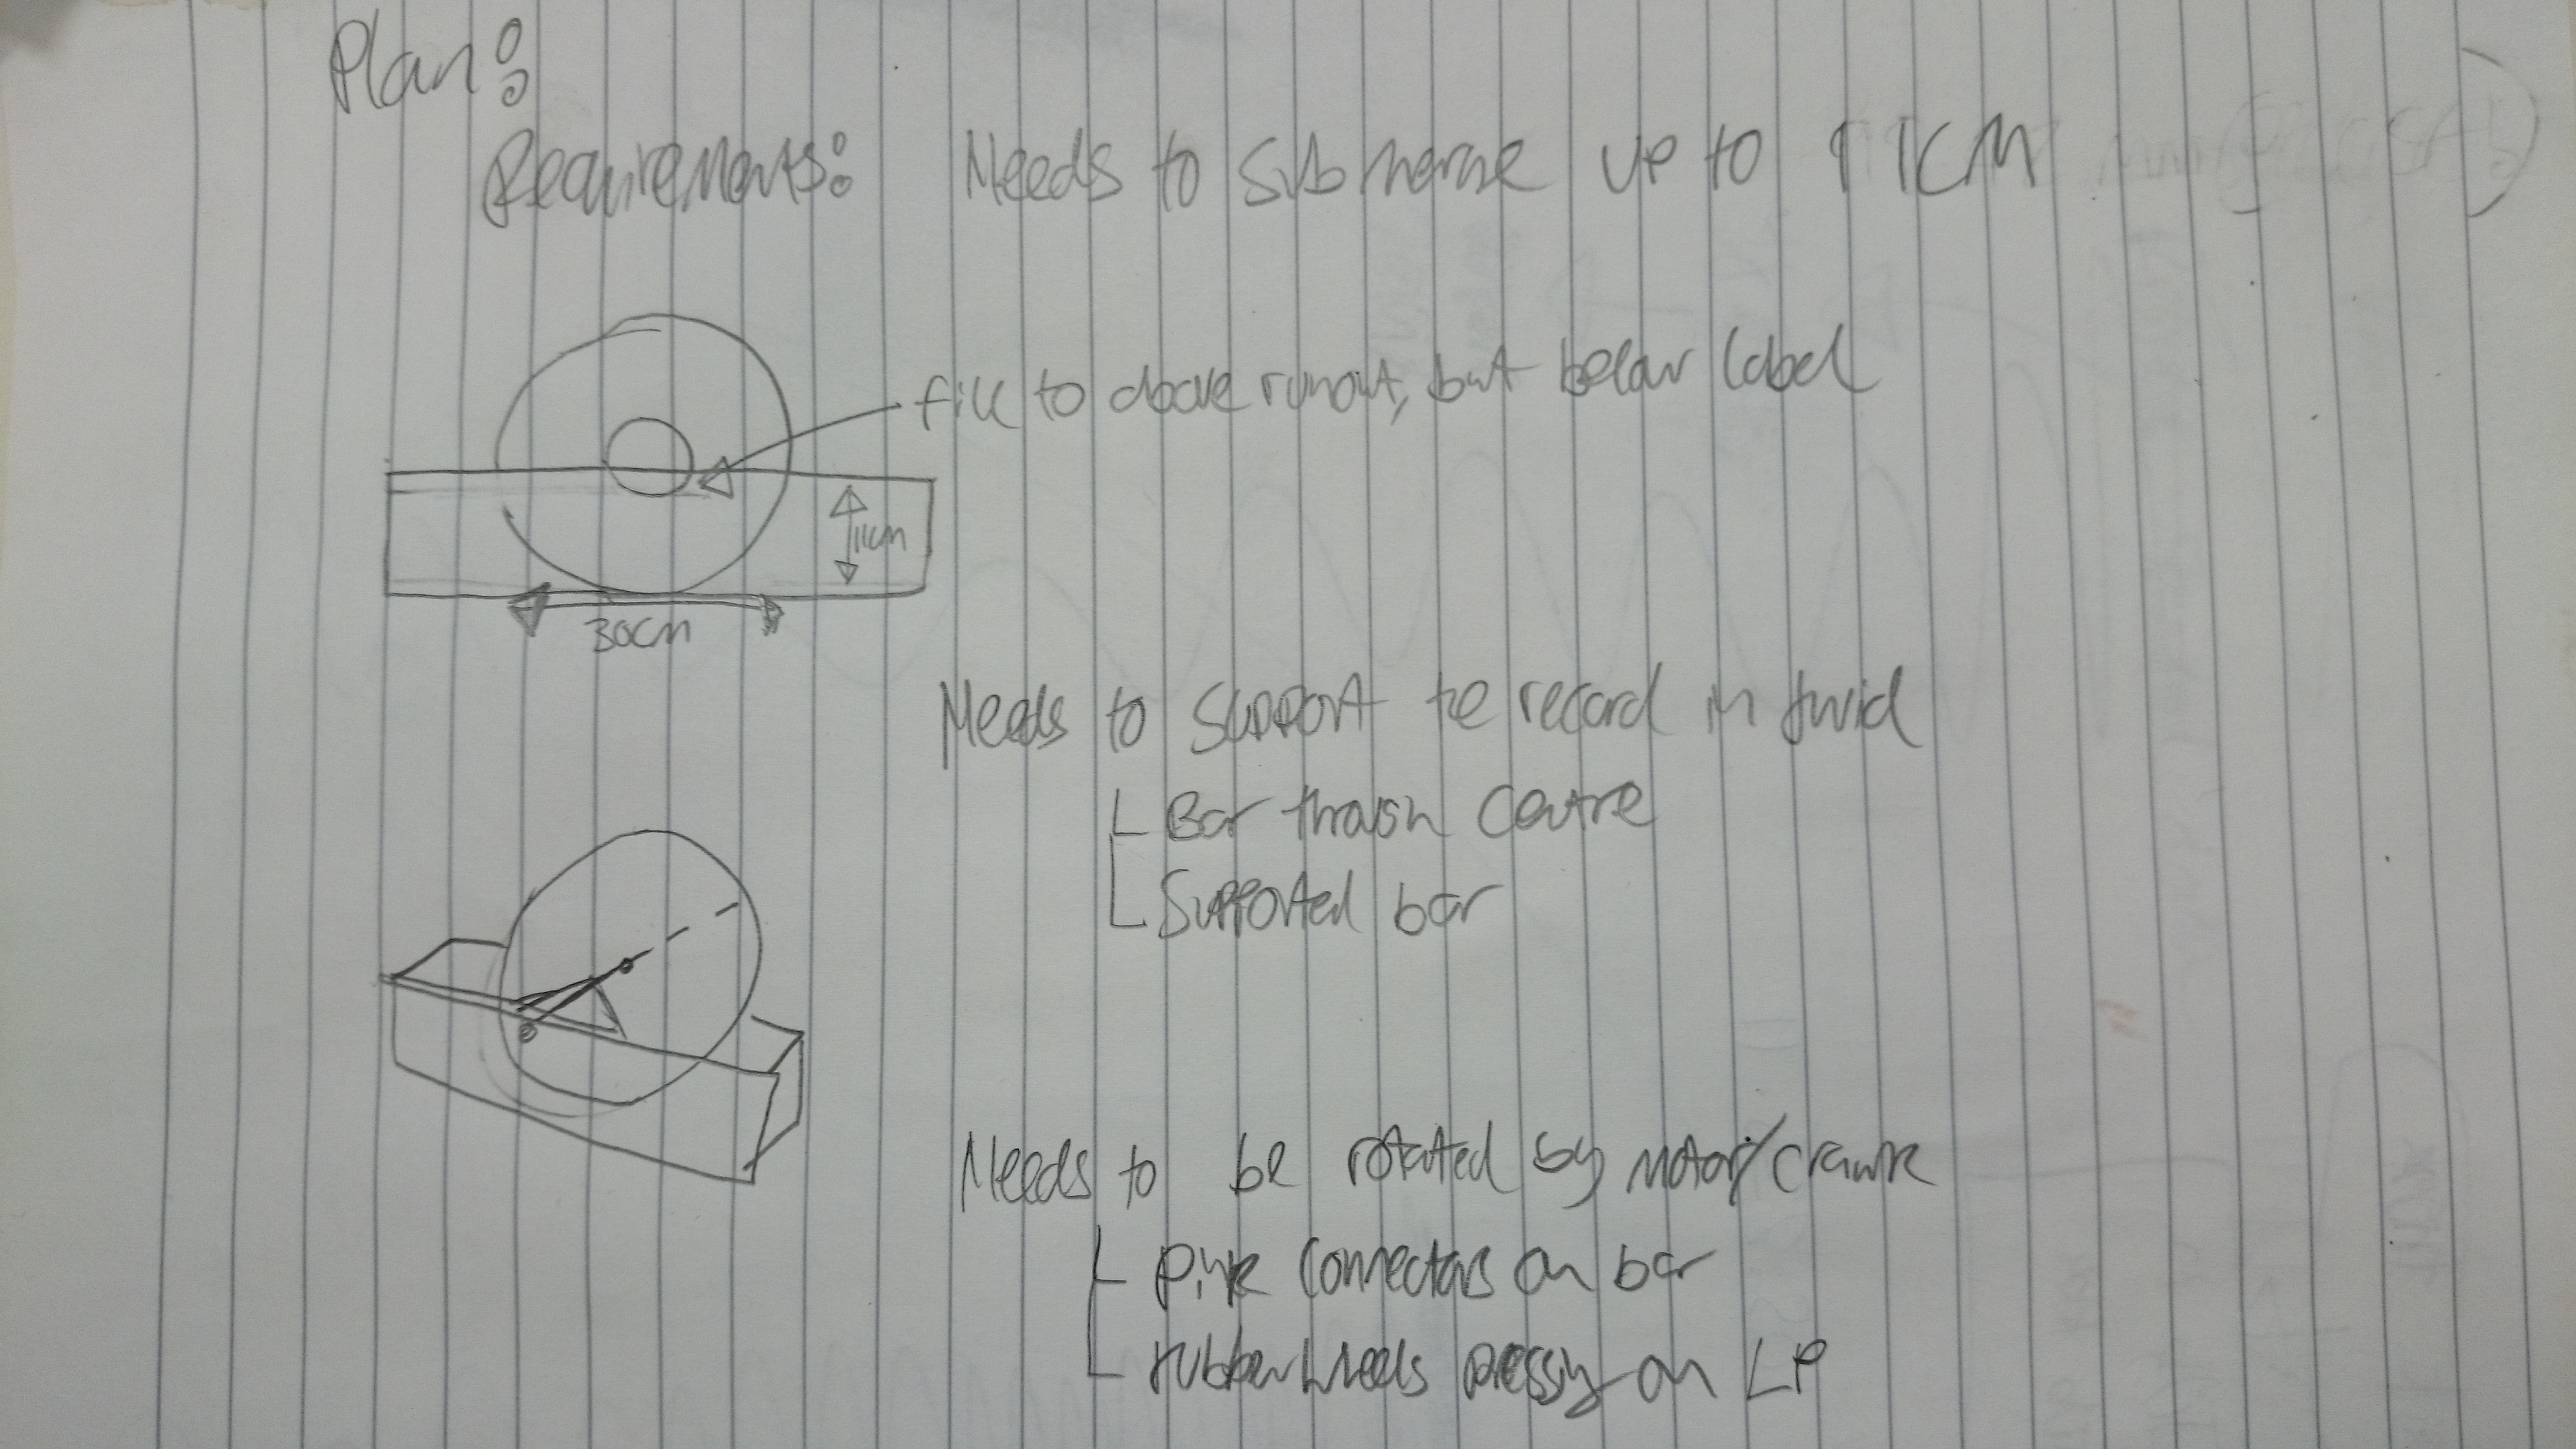 Plan:
Requirements: Needs to submerse up to 11CM
fill to above runout, but below label
11cm
30cm
Needs to support te record in fluid
Bar through Centre
Supported bar
Needs to be rotated by motor/crank
Pink Connectors on bar
rubber wheels pressing on LP